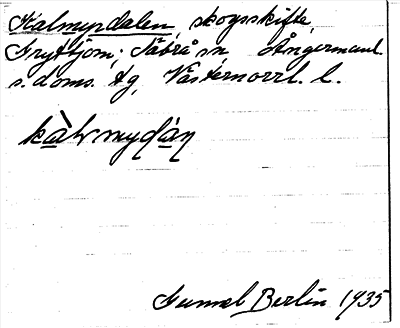 Kalmyrdalen, skogsskifte,
Fryttjom; Säbrå sn, Ångermanl.
s. doms. tg, Västernorrl. l.
Gunnel Berlin 1935